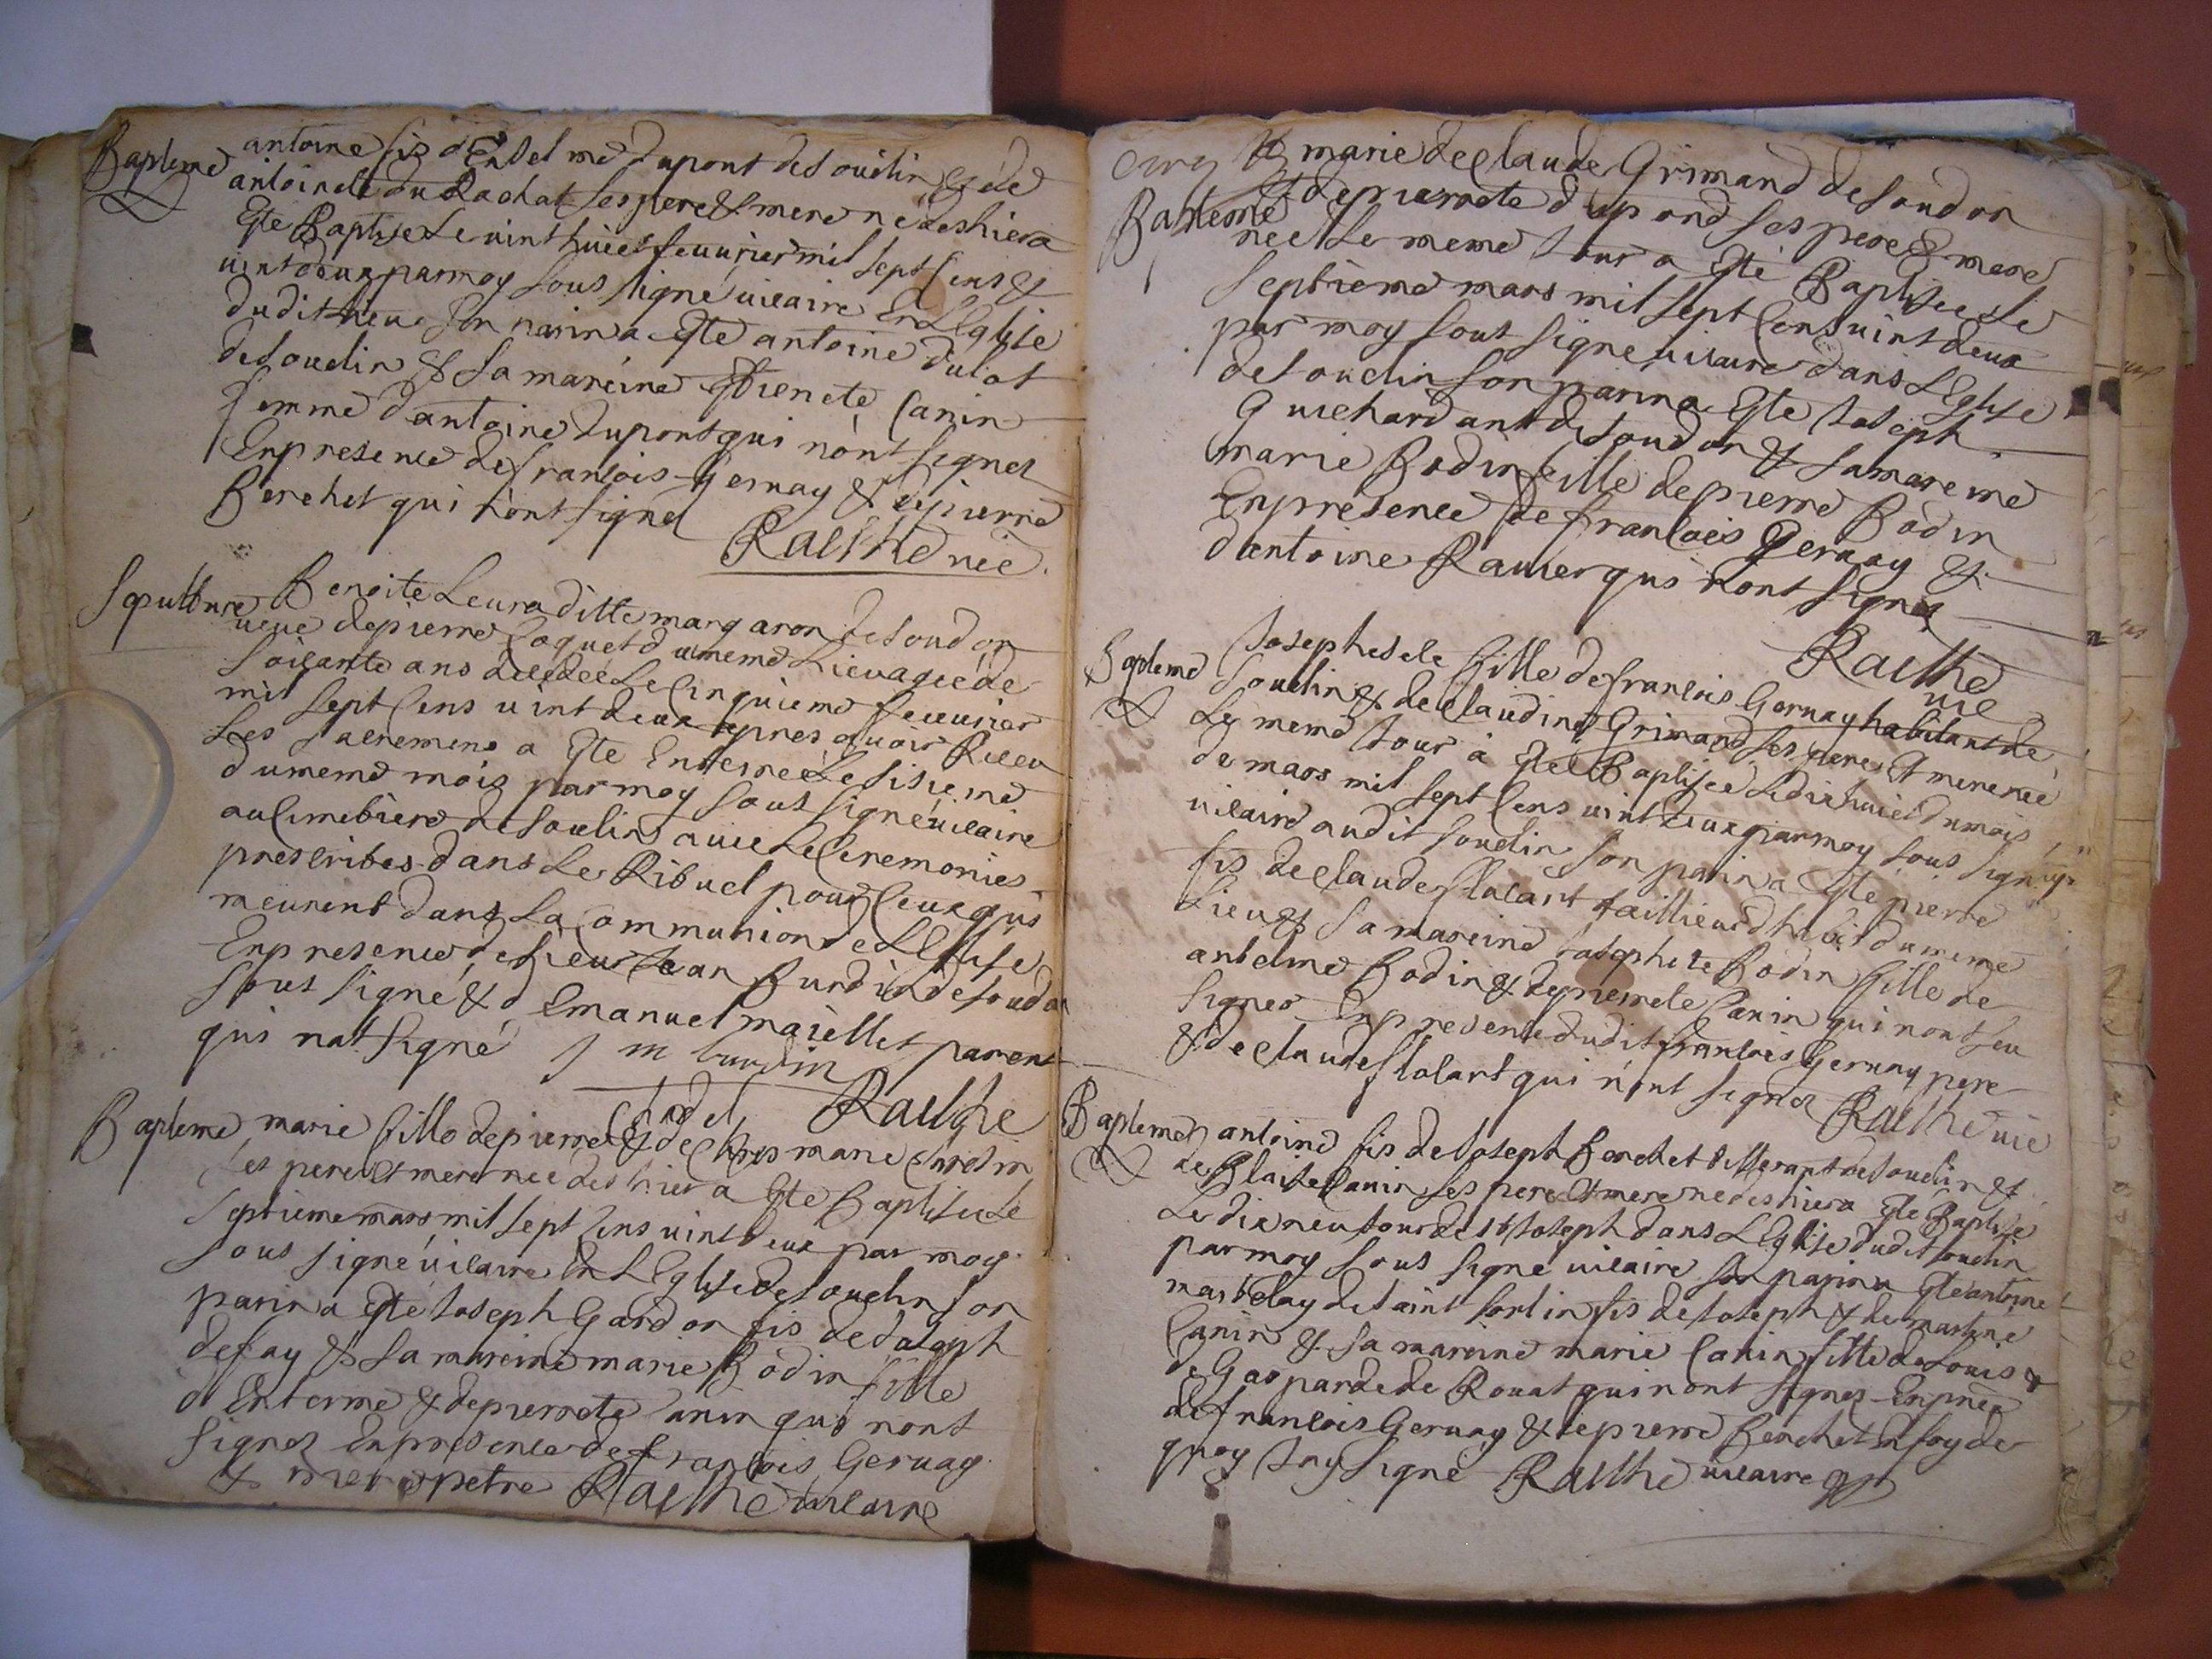 Bapteme antoine fis d'Entelme dupont de Soudin & de
antoinete du Rachat ses pere & mere né des hier a
Eté Baptisé le vint huiet feuurier mil sept sens &
uint deux par moy sous signé uicaire En L'Eglise
dudit lieu Son parin a Eté antoine dulat
de Soudin & Sa mareine Etienete Canin
femme d'antoine dupont qui n'ont signes
En presence de francois Geruay & de pierre
Berchet qui n'ont signes
Raethe uic
Sepulture Benoite Leura ditte margaron de Soudon
ueue de pierre Coquet du meme Lieu agee de
Soisante ans decedeé Le Cinquieme feuurier
mil sept Cens uint deux apres auoir Receu
Les Sacremens a Eté Enterreé Le sisieme
du meme mois par moy sous signé uicaire
au Cimetiere de Soudin auec Le Ceremonies
prescrites dans Le Rituel pour Ceux qui
meurent dans La Communion de L'Eglise
En presence de sieur Jean Burdin de Soudon
sous signé & d'Emanuel maiellet parent
qui nat signé J m burdin
Raethe
Bapteme marie fille de pierre & de marie
Ses pere & mere neé des hier a Eté Baptiseé Le
Septieme mars mil sept Cens uint deux par moy
Sous signé uicaire En L'Eglise de Soudin son
parin a Eté Joseph Gardon fis de Joseph
defay & Sa mareine marie Bodin fille
d'Enterme & de pierrete Canin qui nont
signes En presence de francois Geruay
& petre Raethe uicaire
marie de Claude Grimand de Soudon
Bapteme & de pierrete dupond ses pere & mere
neé Le meme Jour a Eté Baptiseé Le
Septieme mars mil sept Cens uint deux
par moy sous signé uicaire dans L'Eglise
de Soudin son parin a Eté Joseph
Guichardant de Soudon & sa mareine
marie Bodin fille de pierre Bodin
En presence de francois Geruay &
d'antoine Rauier qui n'ont signes
Raethe
uic
Bapteme Josephe fille de francois Geruay habitant de
Soudin & de Claudine Grimand ses pere & mere neé
Le meme Jour à Eté Baptiseé Le dix huiet du mois
de mars mil sept Cens uint deux par moy sous signé
uicaire audit soudin Son parin a Eté pierre
fis de Claude flalart taillieur d'habit du meme
Lieu & Sa mareine Josephete Bodin fille de
antelme Bodin & de pierrete Canin qui nont seu
signer En presence dudit francois Geruay pere
& de Claude flalart qui n'ont signes
Raethe uic
Bapteme antoine fis de Joseph Berchet de Soudin &
de Blaise Canin ses pere & mere ne des hier a Eté Baptisé
Le dix neu Jour de St Joseph dans L'Eglise dudit Soudin
par moy sous signé uicaire son parin a Eté antoine
martelay de Saint Sorlin fis de Joseph & de martine
Canin & sa mareine marie Canin fille de Louis &
de Gasparde de Rouat qui nont signes En pnce
de francois Geruay & de pierre Berchet En foy de
quoy J'ay signé Raethe uicaire